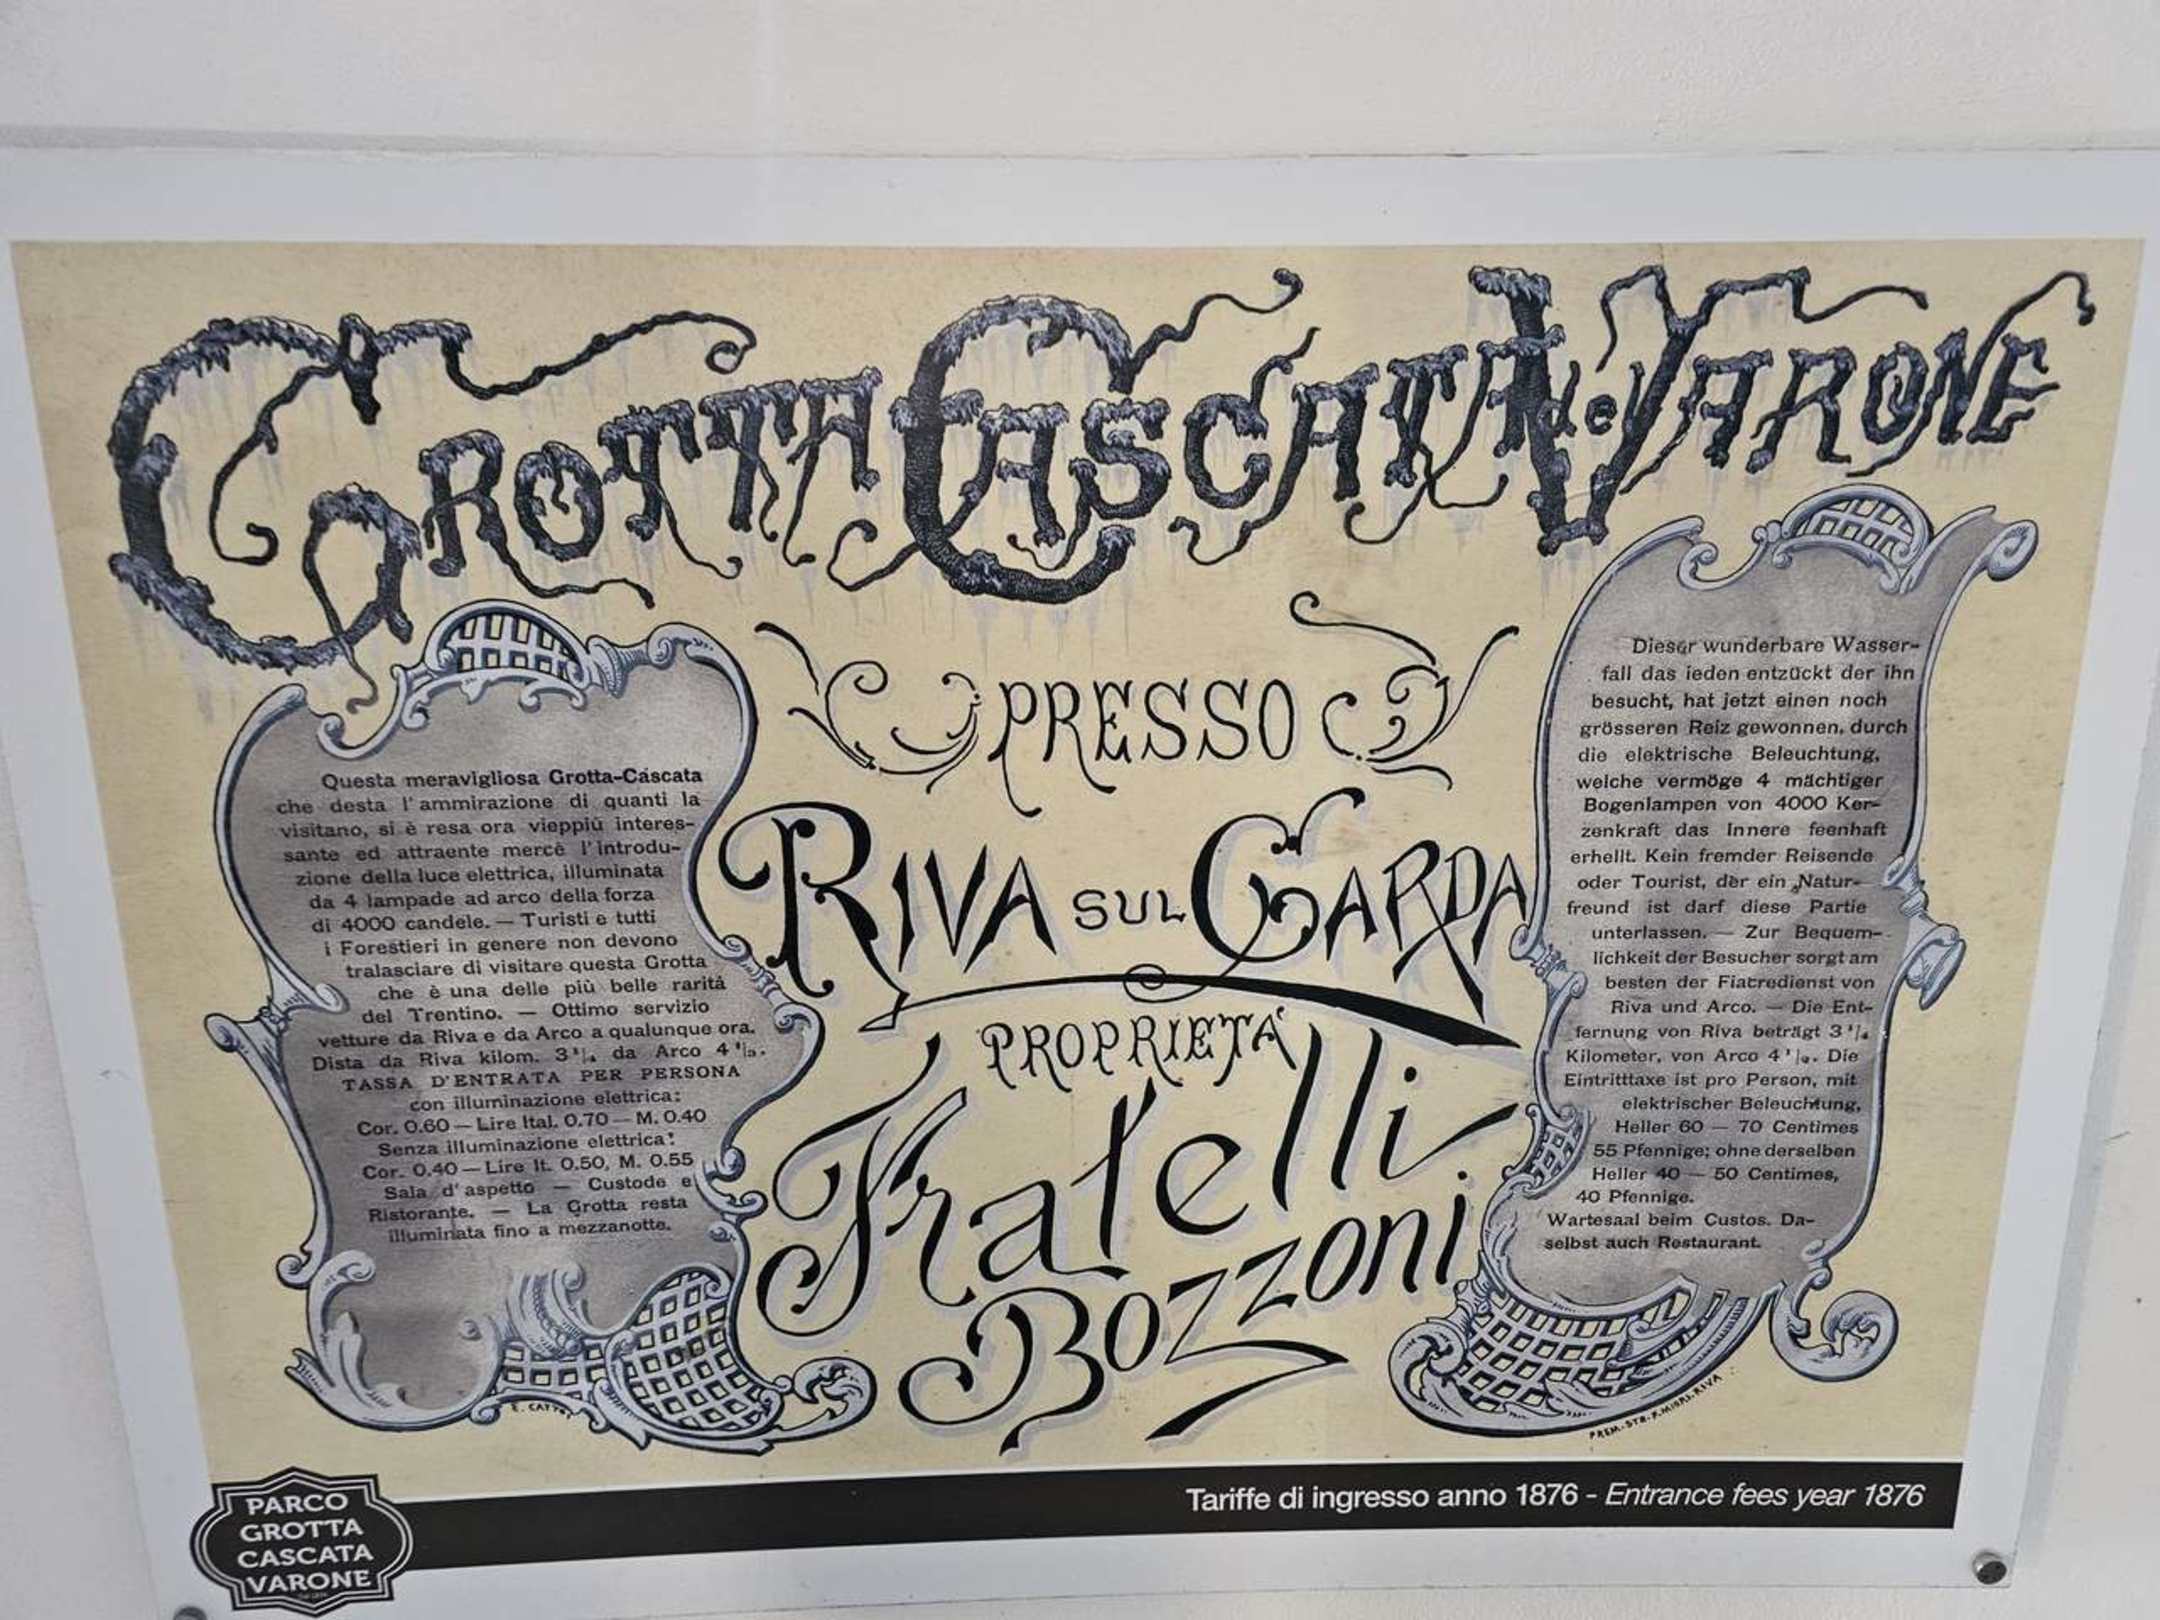 GROTTA CASCATA de VARONE
PRESSO
RIVA SUL GARDA
PROPRIETÀ
Fratelli
Bozzoni
Questa meravigliosa Grotta-Cascata
che desta l'ammirazione di quanti la
visitano, si è resa ora vieppiù interes-
sante ed attraente mercè l'introdu-
zione della luce elettrica, illuminata
da 4 lampade ad arco della forza
di 4000 candele. — Turisti e tutti
i Forestieri in genere non devono
tralasciare di visitare questa Grotta
che è una delle più belle rarità
del Trentino. — Ottimo servizio
vetture da Riva e da Arco a qualunque ora.
Dista da Riva kilom. 3 1/4 da Arco 4 1/2.
TASSA D'ENTRATA PER PERSONA
con illuminazione elettrica:
Cor. 0.60 — Lire Ital. 0.70 — M. 0.40
Senza illuminazione elettrica:
Cor. 0.40 — Lire It. 0.50, M. 0.55
Sala d'aspetto — Custode e
Ristorante. — La Grotta resta
illuminata fino a mezzanotte.
Dieser wunderbare Wasser-
fall das ieden entzückt der ihn
besucht, hat jetzt einen noch
grösseren Reiz gewonnen, durch
die elektrische Beleuchtung,
welche vermöge 4 mächtiger
Bogenlampen von 4000 Ker-
zenkraft das Innere feenhaft
erhellt. Kein fremder Reisende
oder Tourist, der ein Natur-
freund ist darf diese Partie
unterlassen. — Zur Bequem-
lichkeit der Besucher sorgt am
besten der Fiacredienst von
Riva und Arco. — Die Ent-
fernung von Riva beträgt 3 1/4
Kilometer, von Arco 4 1/2. Die
Eintritttaxe ist pro Person, mit
elektrischer Beleuchtung,
Heller 60 — 70 Centimes
55 Pfennige; ohne derselben
Heller 40 — 50 Centimes,
40 Pfennige.
Wartesaal beim Custos. Da-
selbst auch Restaurant.
PREM. RIVA
Tariffe di ingresso anno 1876 - Entrance fees year 1876
PARCO
GROTTA
CASCATA
VARONE